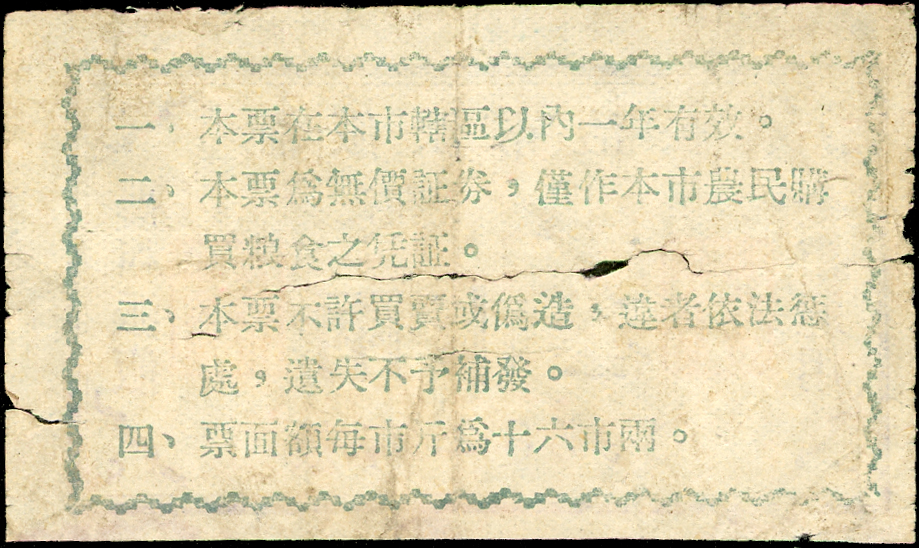 一、本票在本市轄區以內一年有效。
二、本票爲無價証券，僅作本市農民購
買粮食之凭証。
三、本票不許買賣或僞造，違者依法懲
處，遺失不予補發。
四、票面額每市斤爲十六市兩。